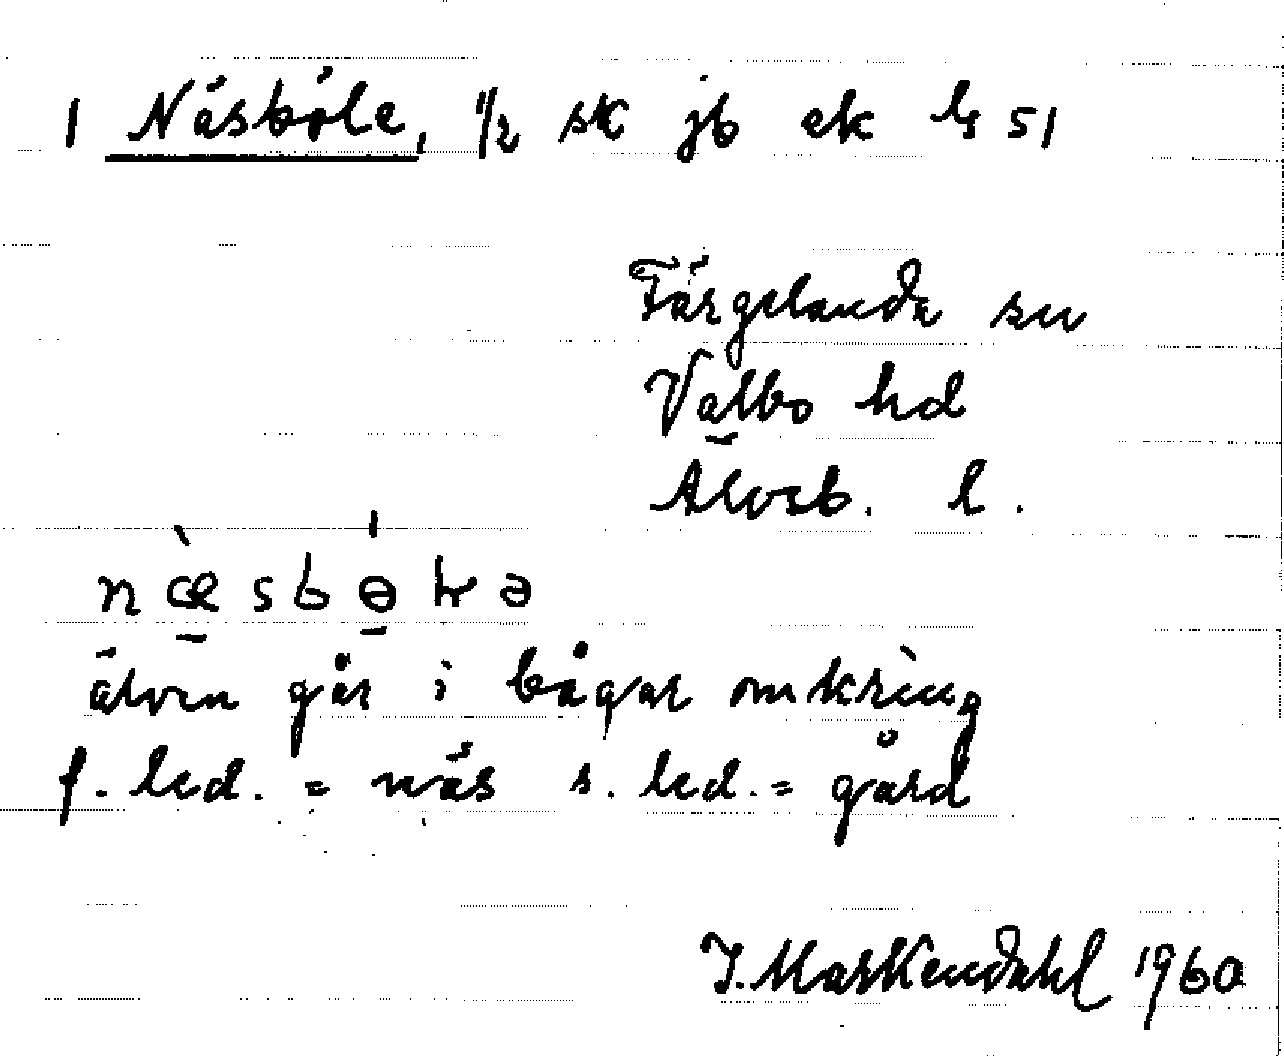 1 Näsböle, 1/2 sk jb ek G 51
Färgelanda sn
Valbo hd
Älvsb. l.
älven går i bågar omkring
f. led. = näs s. led. = gård
J. Markendahl 1960